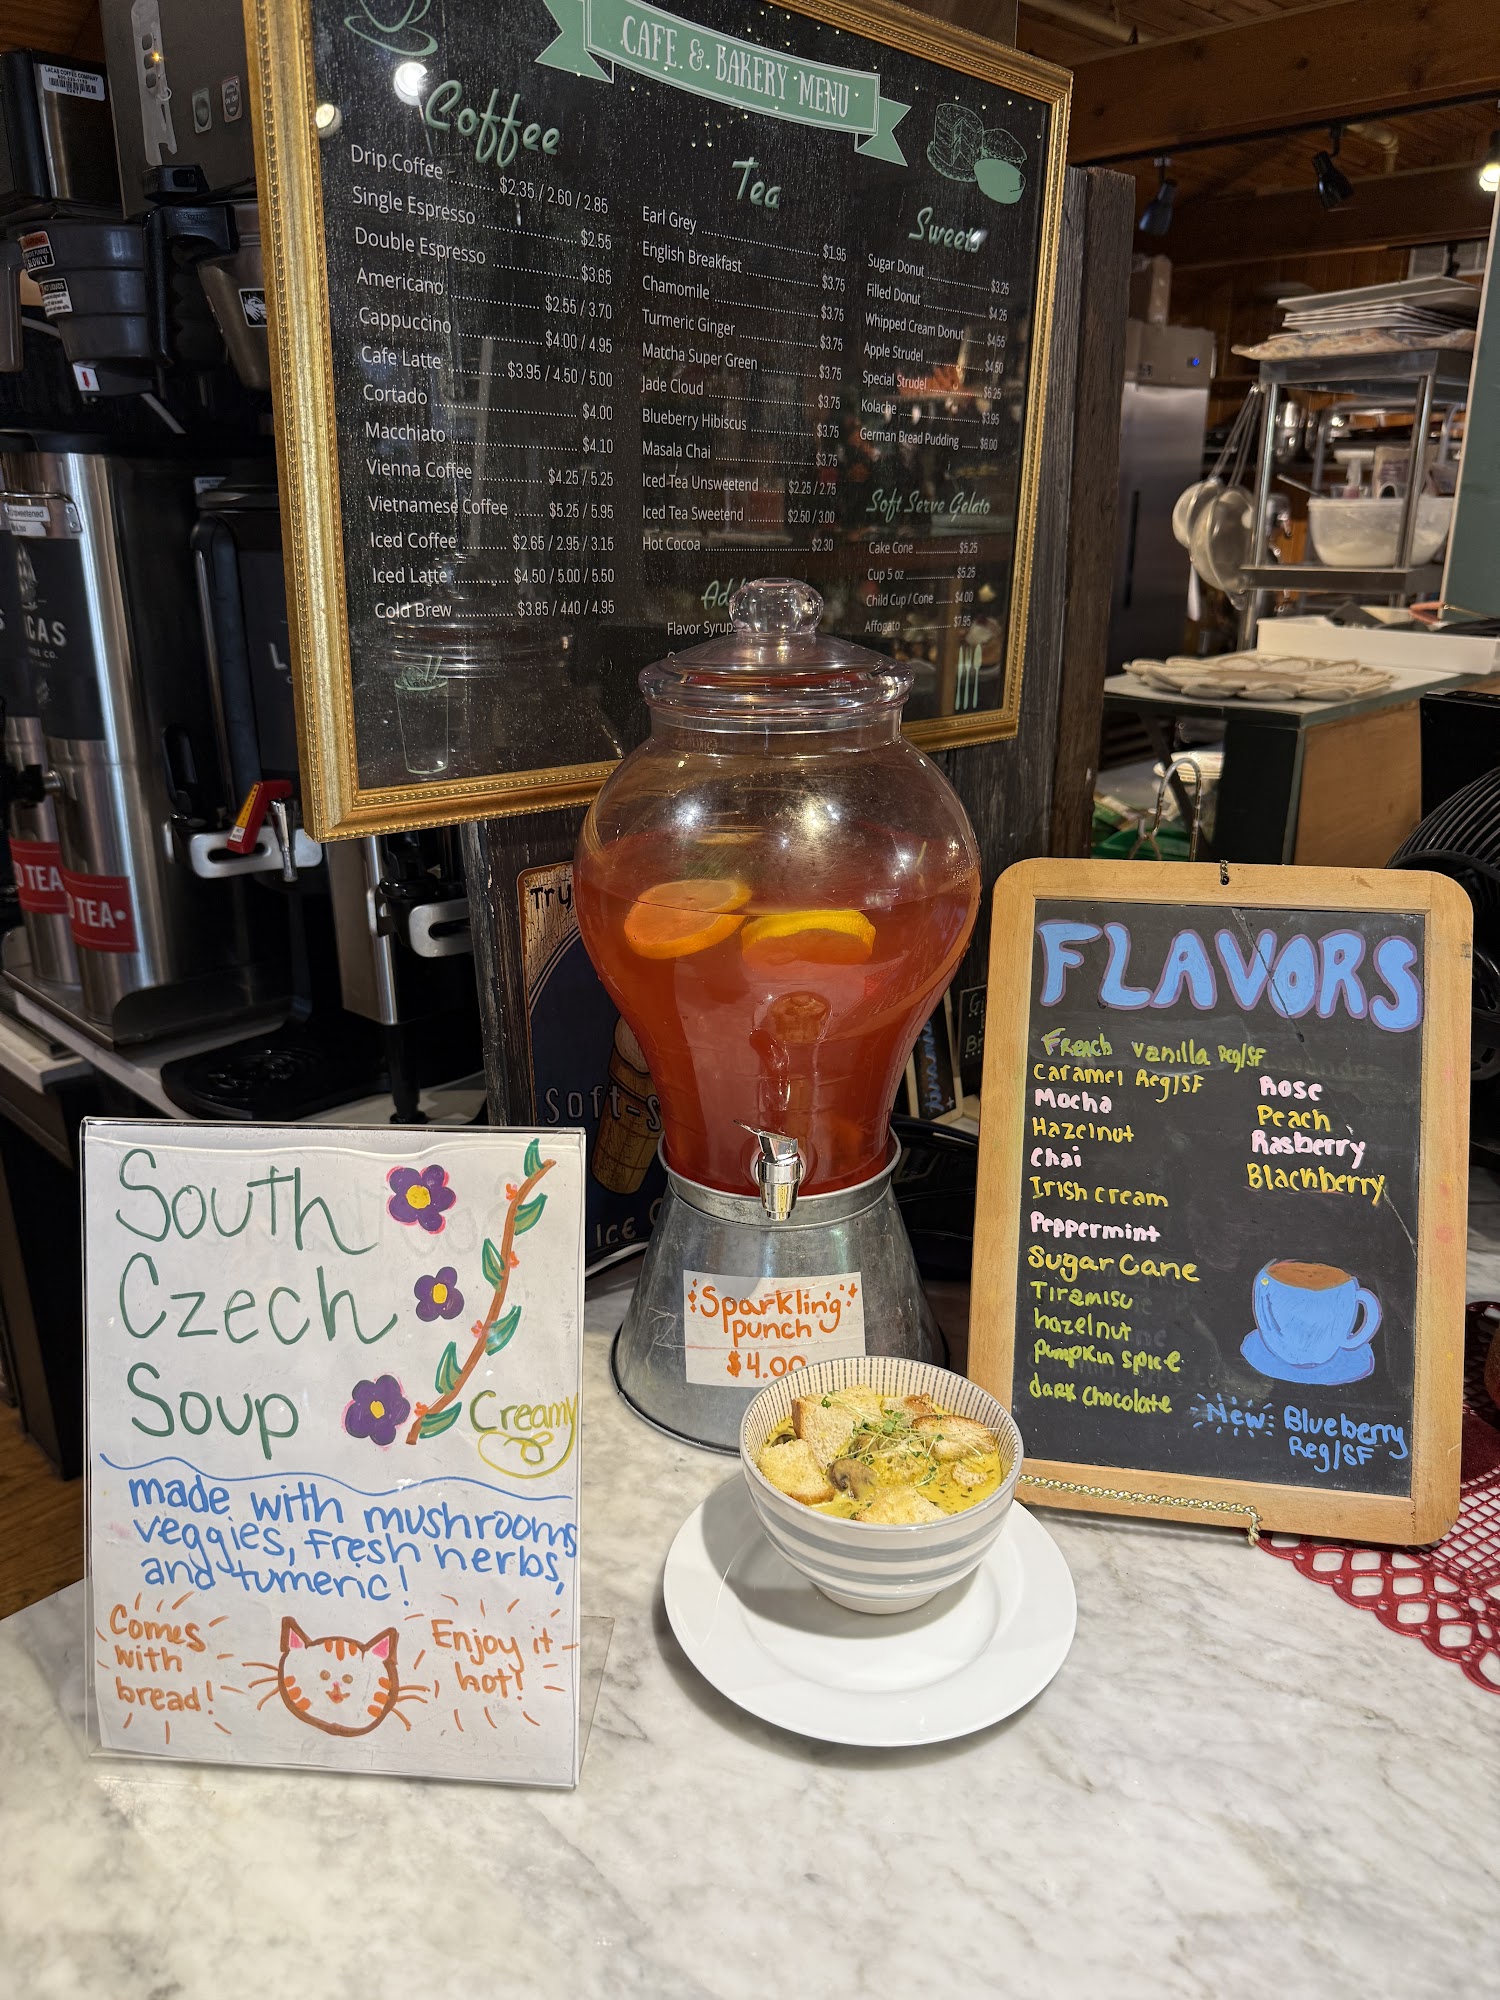 CAFE & BAKERY MENU
Coffee
Drip Coffee $2.35 / 2.60 / 2.85
Single Espresso $2.55
Double Espresso $3.65
Americano $2.55 / 3.70
Cappuccino $4.00 / 4.95
Cafe Latte $3.95 / 4.50 / 5.00
Cortado $4.00
Macchiato $4.10
Vienna Coffee $4.25 / 5.25
Vietnamese Coffee $5.25 / 5.95
Iced Coffee $2.65 / 2.95 / 3.15
Iced Latte $4.50 / 5.00 / 5.50
Cold Brew $3.85 / 440 / 4.95
Tea
Earl Grey $1.95
English Breakfast $3.75
Chamomile $3.75
Turmeric Ginger $3.75
Matcha Super Green $3.75
Jade Cloud $3.75
Blueberry Hibiscus $3.75
Masala Chai $3.75
Iced Tea Unsweetend $2.25 / 2.75
Iced Tea Sweetend $2.50 / 3.00
Hot Cocoa $2.30
Flavor Syrups
Sweets
Sugar Donut $3.25
Filled Donut $4.25
Whipped Cream Donut $4.55
Apple Strudel $4.50
Special Strudel $6.25
Kolache $3.95
German Bread Pudding $6.00
Soft Serve Gelato
Cake Cone $5.25
Cup 5 oz $5.25
Child Cup / Cone $4.00
Affogato $7.95
LACAS COFFEE COMPANY
TEA
TEA
Try
Soft-S
ICE
FLAVORS
French Vanilla Reg/SF
Caramel Reg/SF
Mocha
Hazelnut
Chai
Irish cream
Peppermint
Sugar Cane
Tiramisu
hazelnut
pumpkin spice
dark chocolate
Rose
Peach
Rasberry
Blackberry
New Blueberry
Reg/SF
Sparkling
punch
$4.00
South
Czech
Soup
Creamy
made with mushrooms
veggies, fresh herbs,
and tumeric!
Comes
with
bread!
Enjoy it
hot!